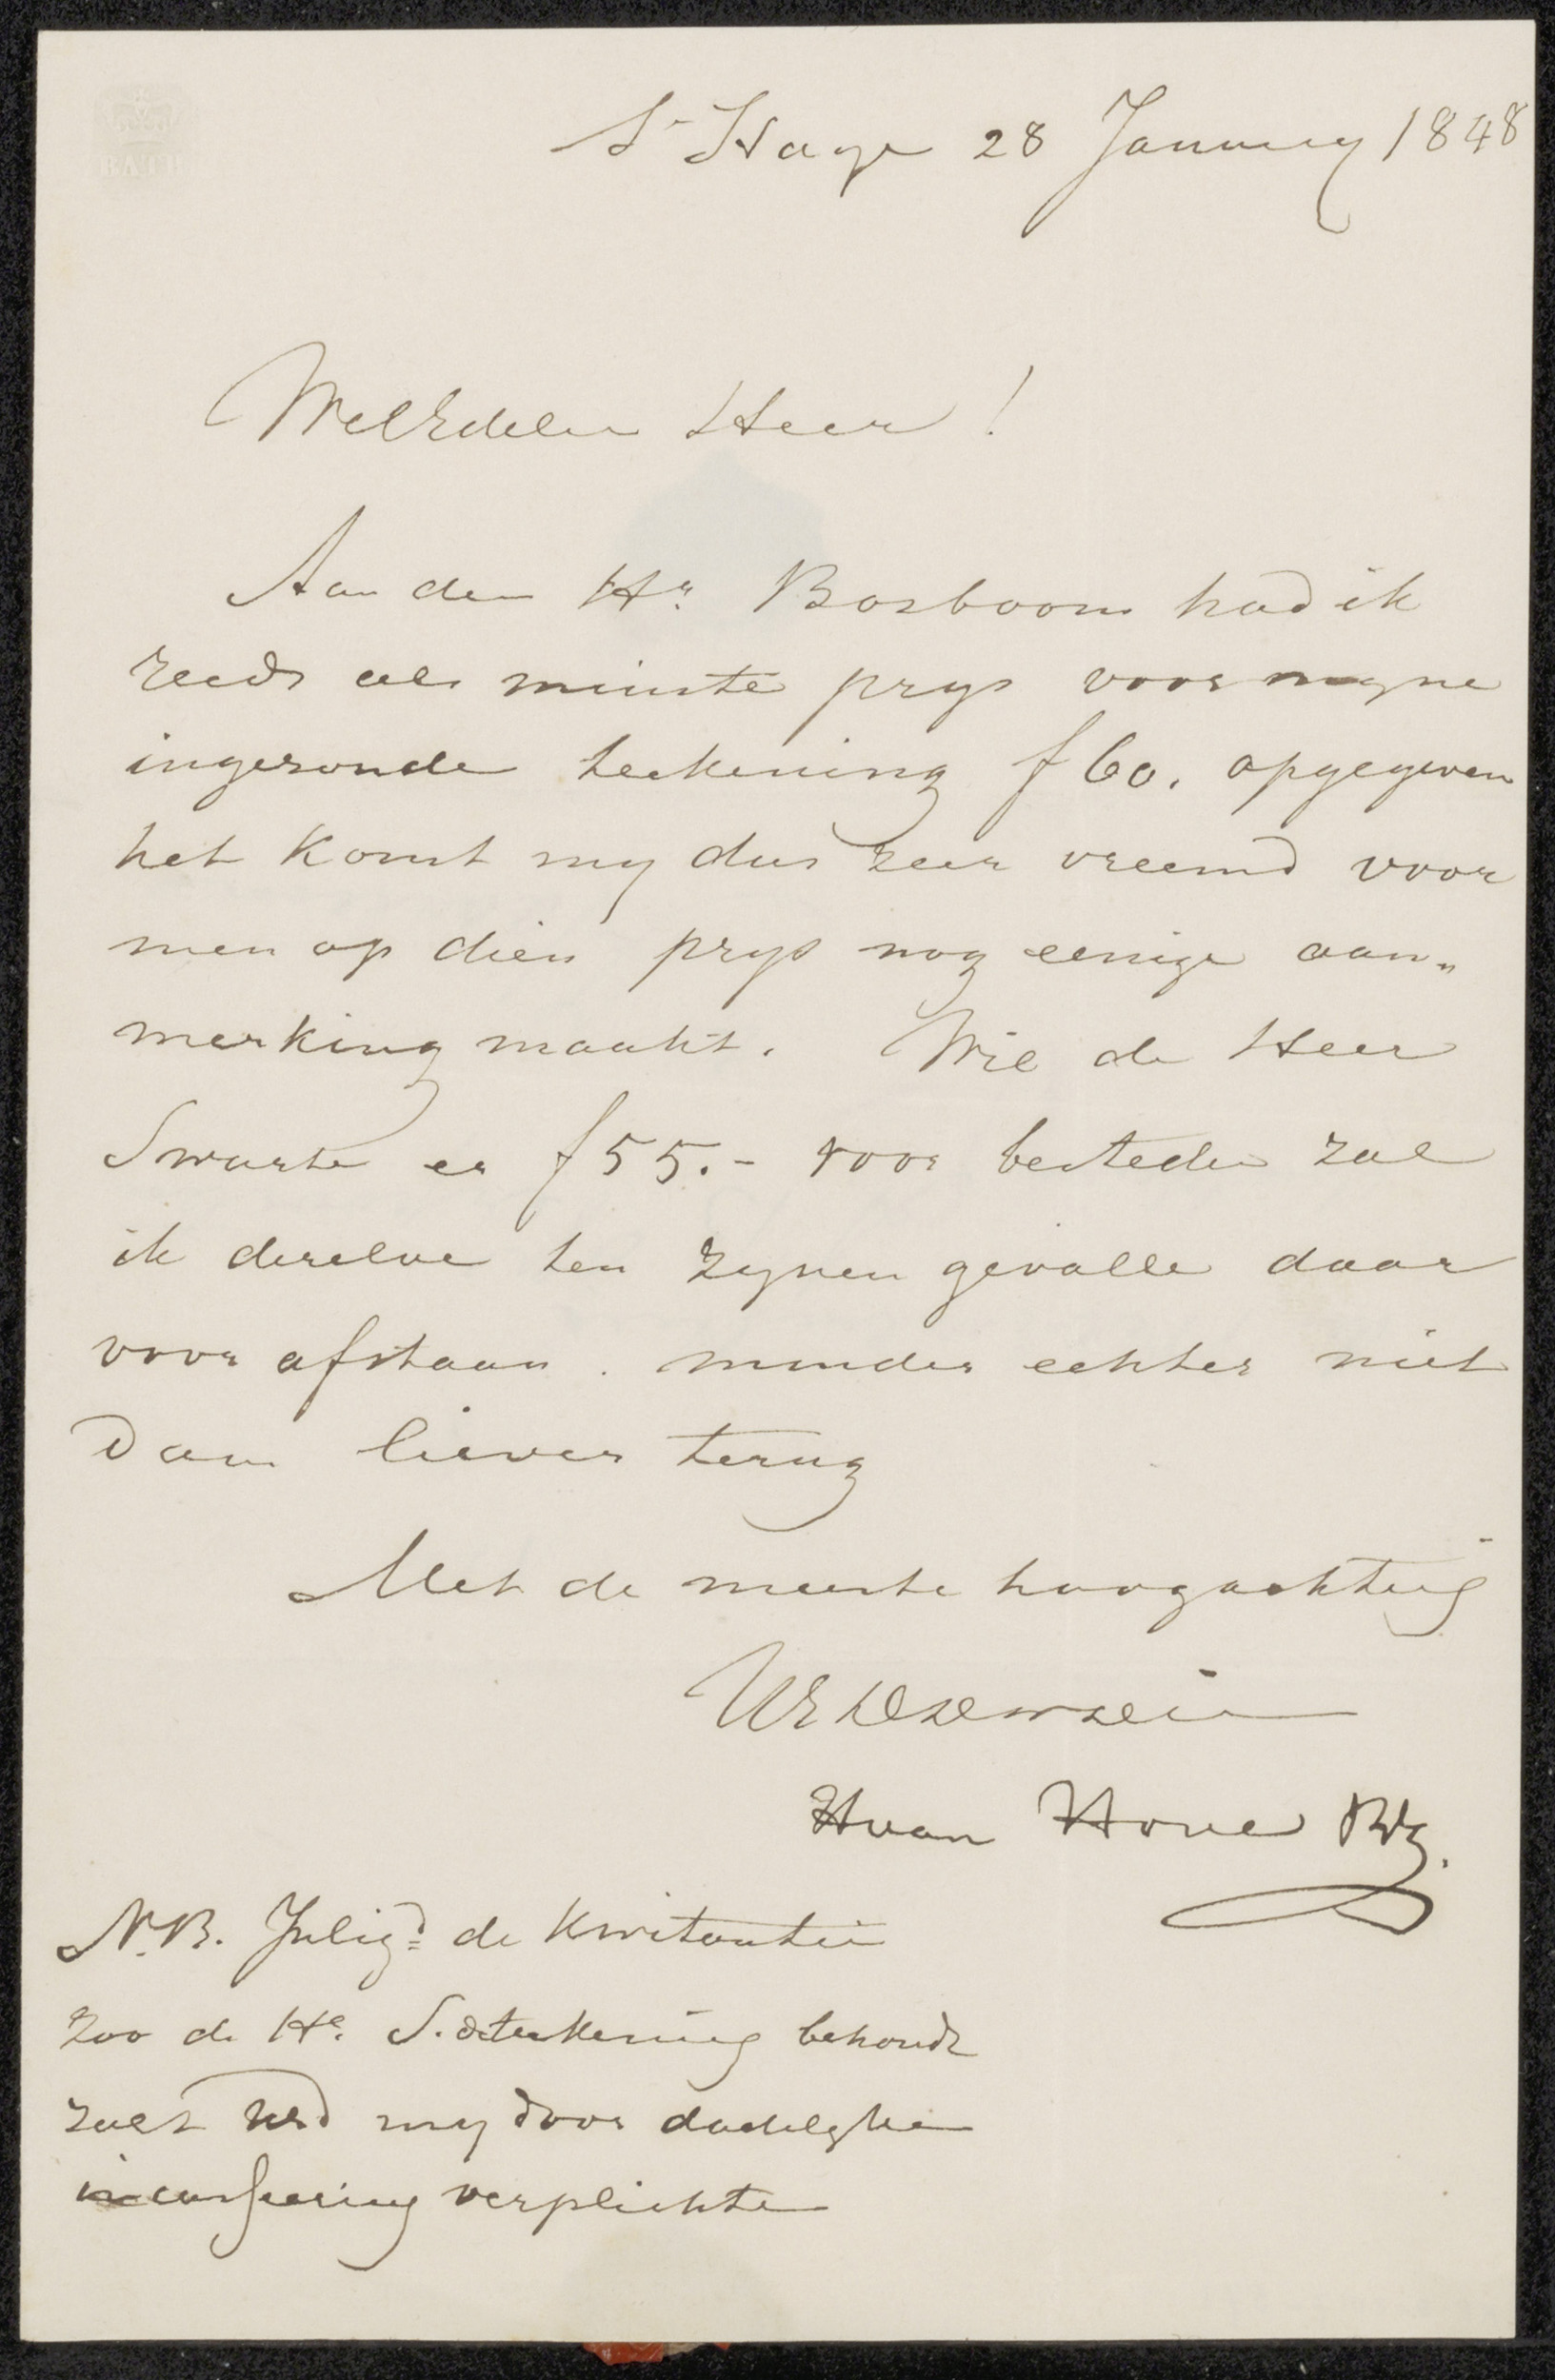 S'Hage 28 January 1848
WelEdelen Heer!
Aan den Hr. Bosboom had ik
reeds als minste prys voor myne
ingezonde teekening f 60. opgegeven
het komt my dus zeer vreemd voor
men op dien prys nog eenige aan„
merking maakt. Wil de Heer
Swarte er f 55.- voor besteden zal
ik dezelve ten zynen gevalle daar
voor afstaan. minder echter niet
Dan liever terug
Met de meeste hoogachting
UE
Hvan Hove Bz.
N.B. Inligd de kwitantie
zoo de Hr. S. de teekening behoudt
zult UEd my door dadelyke
incasseering verplichten